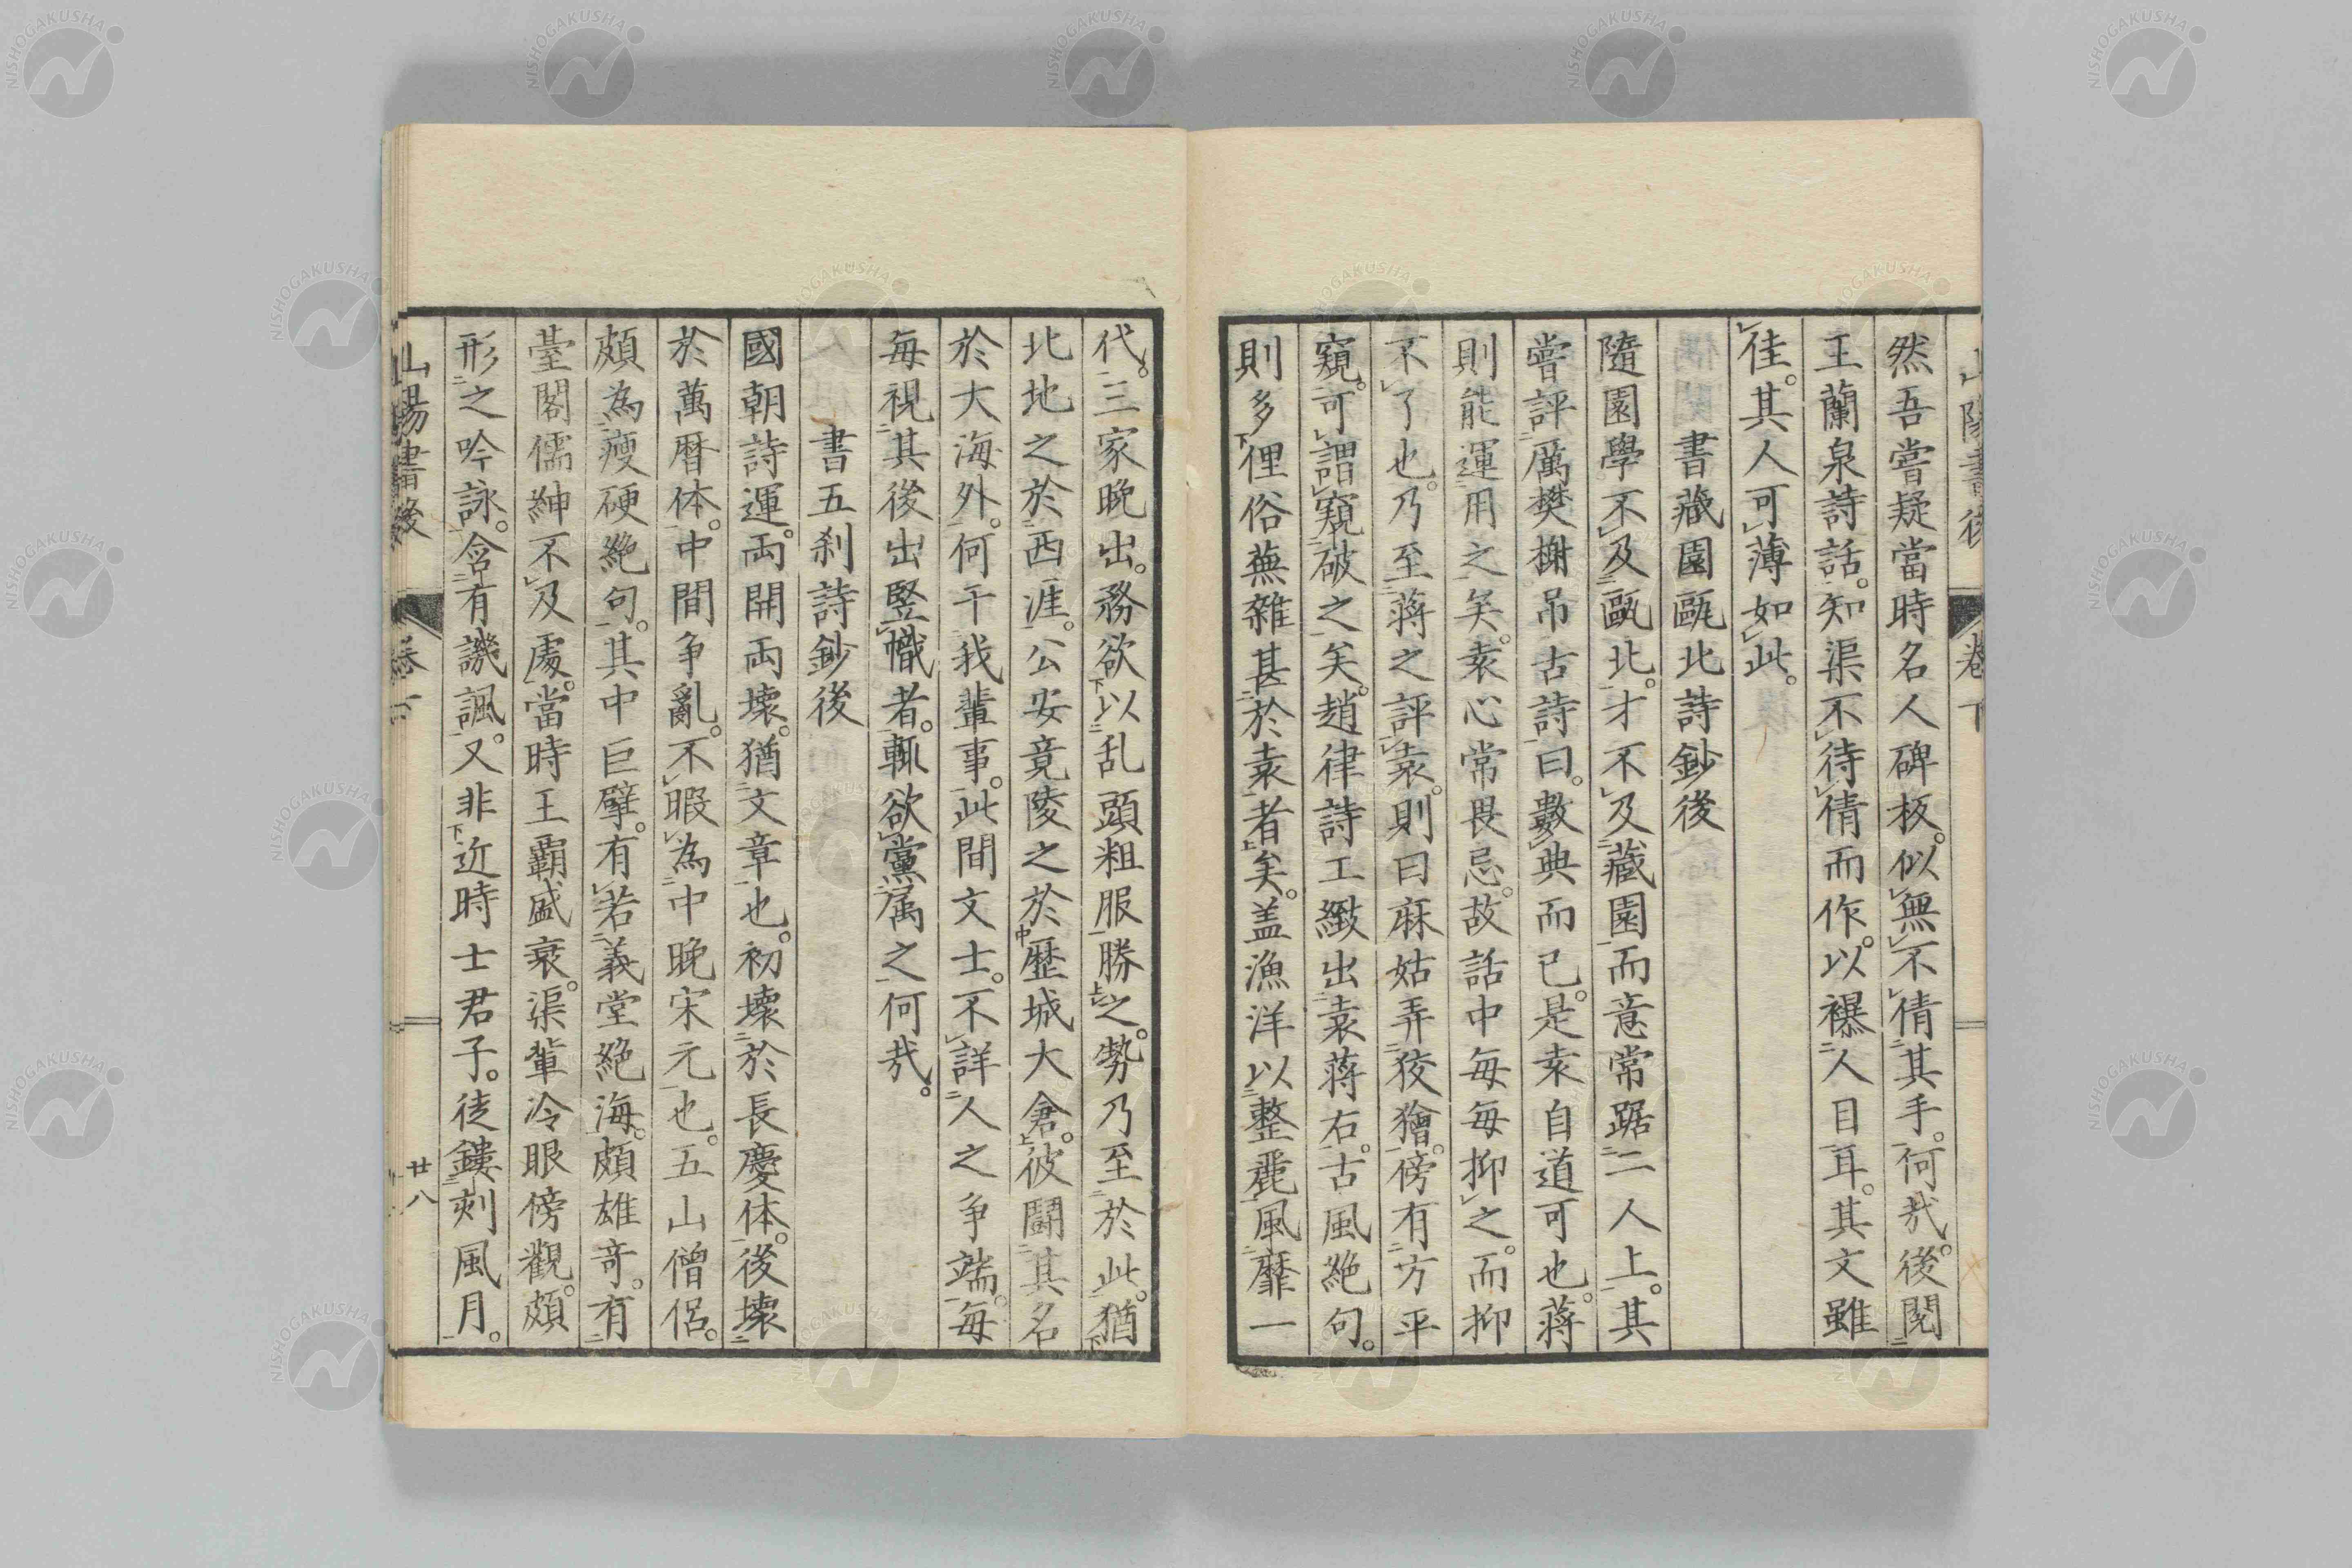 然吾嘗疑當時名人碑板。似無不倩其手。何哉。後閱
王蘭泉詩話。知渠不待倩而作。以襮人目耳。其文雖
佳。其人可薄如此。
書藏園甌北詩鈔後
隨園學不及甌北。才不及藏園。而意常踞二人上。其
嘗評厲樊榭吊古詩曰。數典而已。是袁自道可也。蔣
則能運用之矣。袁心常畏忌。故話中每每抑之。而抑
不了也。乃至蔣之評袁。則曰麻姑弄狡獪。傍有方平
窺。可謂窺破之矣。趙律詩工緻出袁蔣右。古風絶句。
則多俚俗蕪雜甚於袁者矣。盖漁洋以整麗風靡一
代。三家晚出。務欲以乱頭粗服勝之。勢乃至於此。猶
北地之於西涯。公安竟陵之於歷城大倉。彼鬪其名
於大海外。何干我輩事。此間文士。不詳人之争端。每
每視其後出竪幟者。輒欲黨属之何哉。
書五刹詩鈔後
國朝詩運。両開両壊。猶文章也。初壊於長慶体。後壊
於萬暦体。中間争亂。不暇為中晚宋元也。五山僧侶。
頗為瘦硬絶句。其中巨擘。有若義堂絶海。頗雄竒。有
臺閣儒紳不及處。當時王覇盛衰。渠輩冷眼傍觀。頗
形之吟詠。含有譏諷。又非近時士君子。徒鏤刻風月。
山陽書後
卷下
山陽書後
廿八
NISHOGAKUSHA